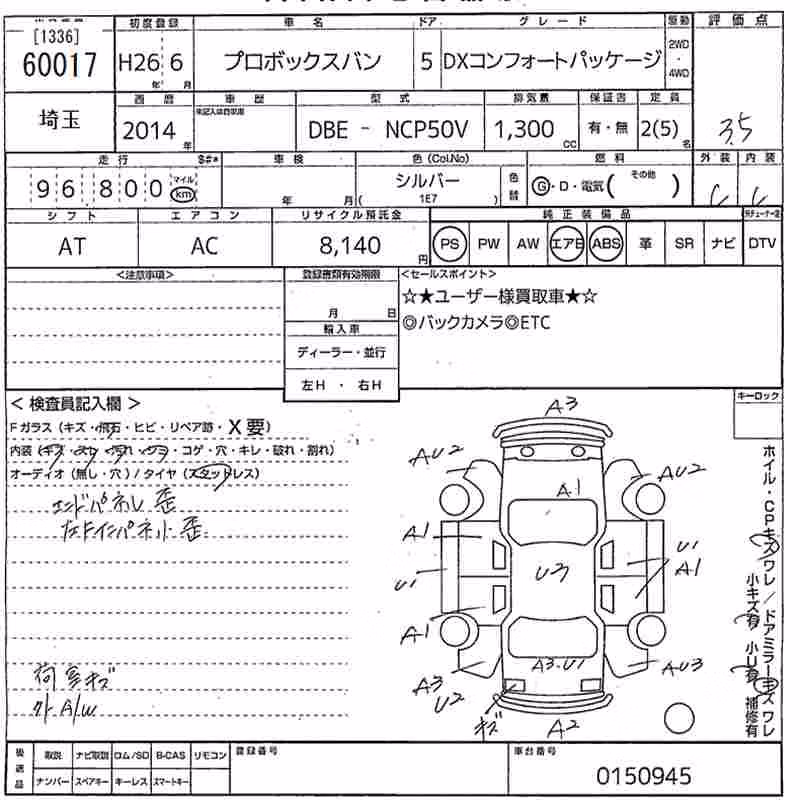 [1336] 初度登録 車 名 ドア グ レ ー ド 駆動 評 価 点
60017 H26 6 プロボックスバン 5 DXコンフォートパッケージ 2WD・4WD
年 月
埼玉 西 暦 車 歴 型 式 排気量 保証書 定 員
未記入は自家用
2014年 DBE － NCP50V 1,300 CC 有・無 2(5)名 3.5
走 行 $#* 車 検 色(Col.No) 燃 料 外 装 内 装
96800 マイル km 年 月 シルバー 色替 G・D・電気( その他 ) C C
( 1E7 )
シ フ ト エ ア コ ン リサイクル預託金 純 正 装 備 品
AT AC 8,140円 PS PW AW エアB ABS 革 SR ナビ DTV
<注意事項> 登録書類有効期限 <セールスポイント>
月 日
☆★ユーザー様買取車★☆
輸 入 車
◎バックカメラ◎ETC
ディーラー・並行
左H ・ 右H
< 検査員記入欄 > キーロック
Fガラス(キズ・飛石・ヒビ・リペア跡・X要)
内装(キズ・スレ・汚れ・ワミ・コゲ・穴・キレ・破れ・割れ)
オーディオ(無し・穴)/タイヤ(スタッドレス)
エンドパネル 歪
左Fインパネル 歪
荷室キズ
外A/W
A3
AU2 AU2
A1
A1 U1
A1
U1 U3
A1
A3.U1 AU3
A3
U2
キズ A2
ホイル・CPキズワレ/ドアミラーキズワレ
小キズ有 小U有 補修有
後送品 取説 ナビ取説 ロム/SD B-CAS リモコン 登録番号 車台番号
ナンバー スペアキー キーレス スマートキー 0150945